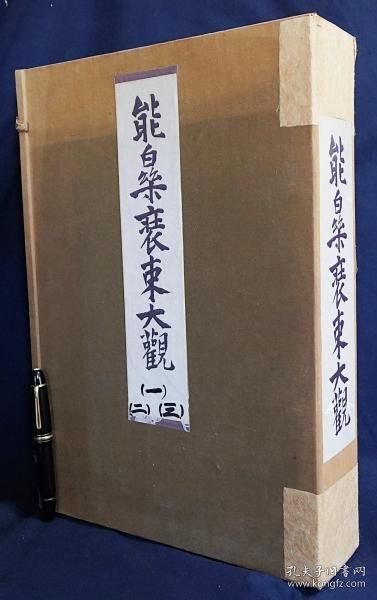 能楽装束大觀
(一)
(二) (三)
能楽装束大觀
孔夫子旧书网
www.kongfz.com